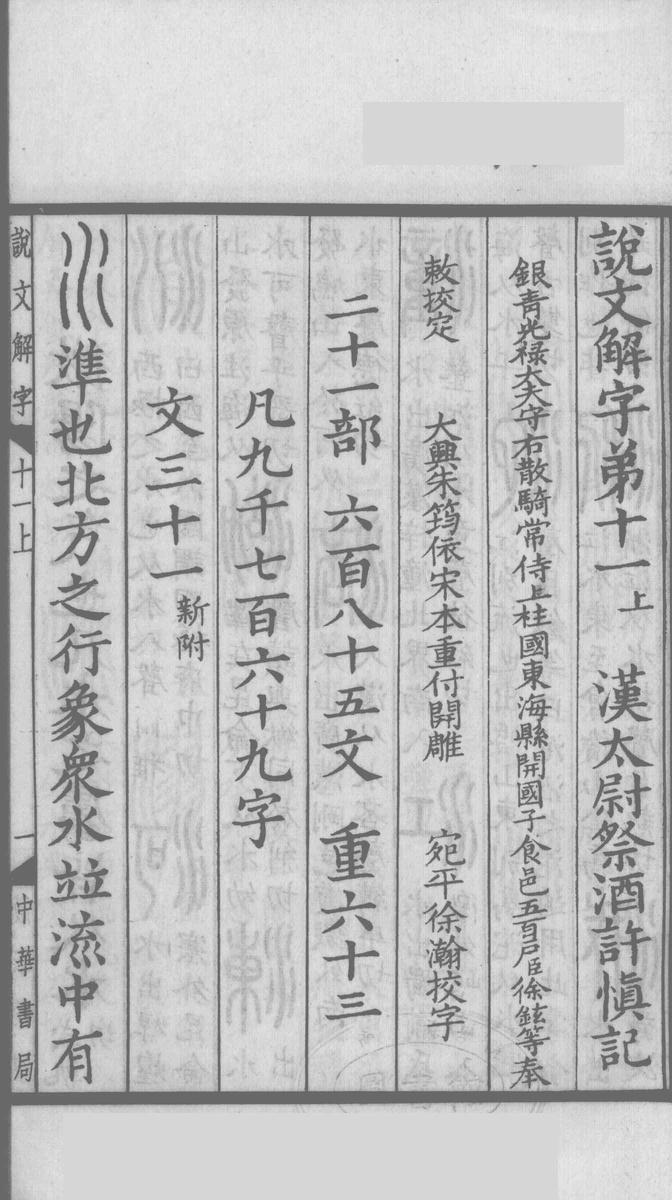 說文解字弟十一上　漢太尉祭酒許愼記
銀青光禄大夫守右散騎常侍上柱國東海縣開國子食邑五百戸臣徐鉉等奉
敕挍定　大興朱筠依宋本重付開雕　宛平徐瀚挍字
二十一部　六百八十五文　重六十三
凡九千七百六十九字
文三十一新附
準也北方之行象衆水竝流中有
說文解字　十一上　一　中華書局